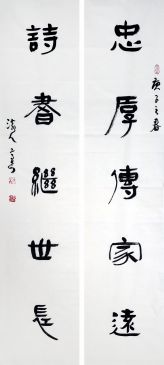 忠厚傳家遠
庚子之春
詩書繼世長